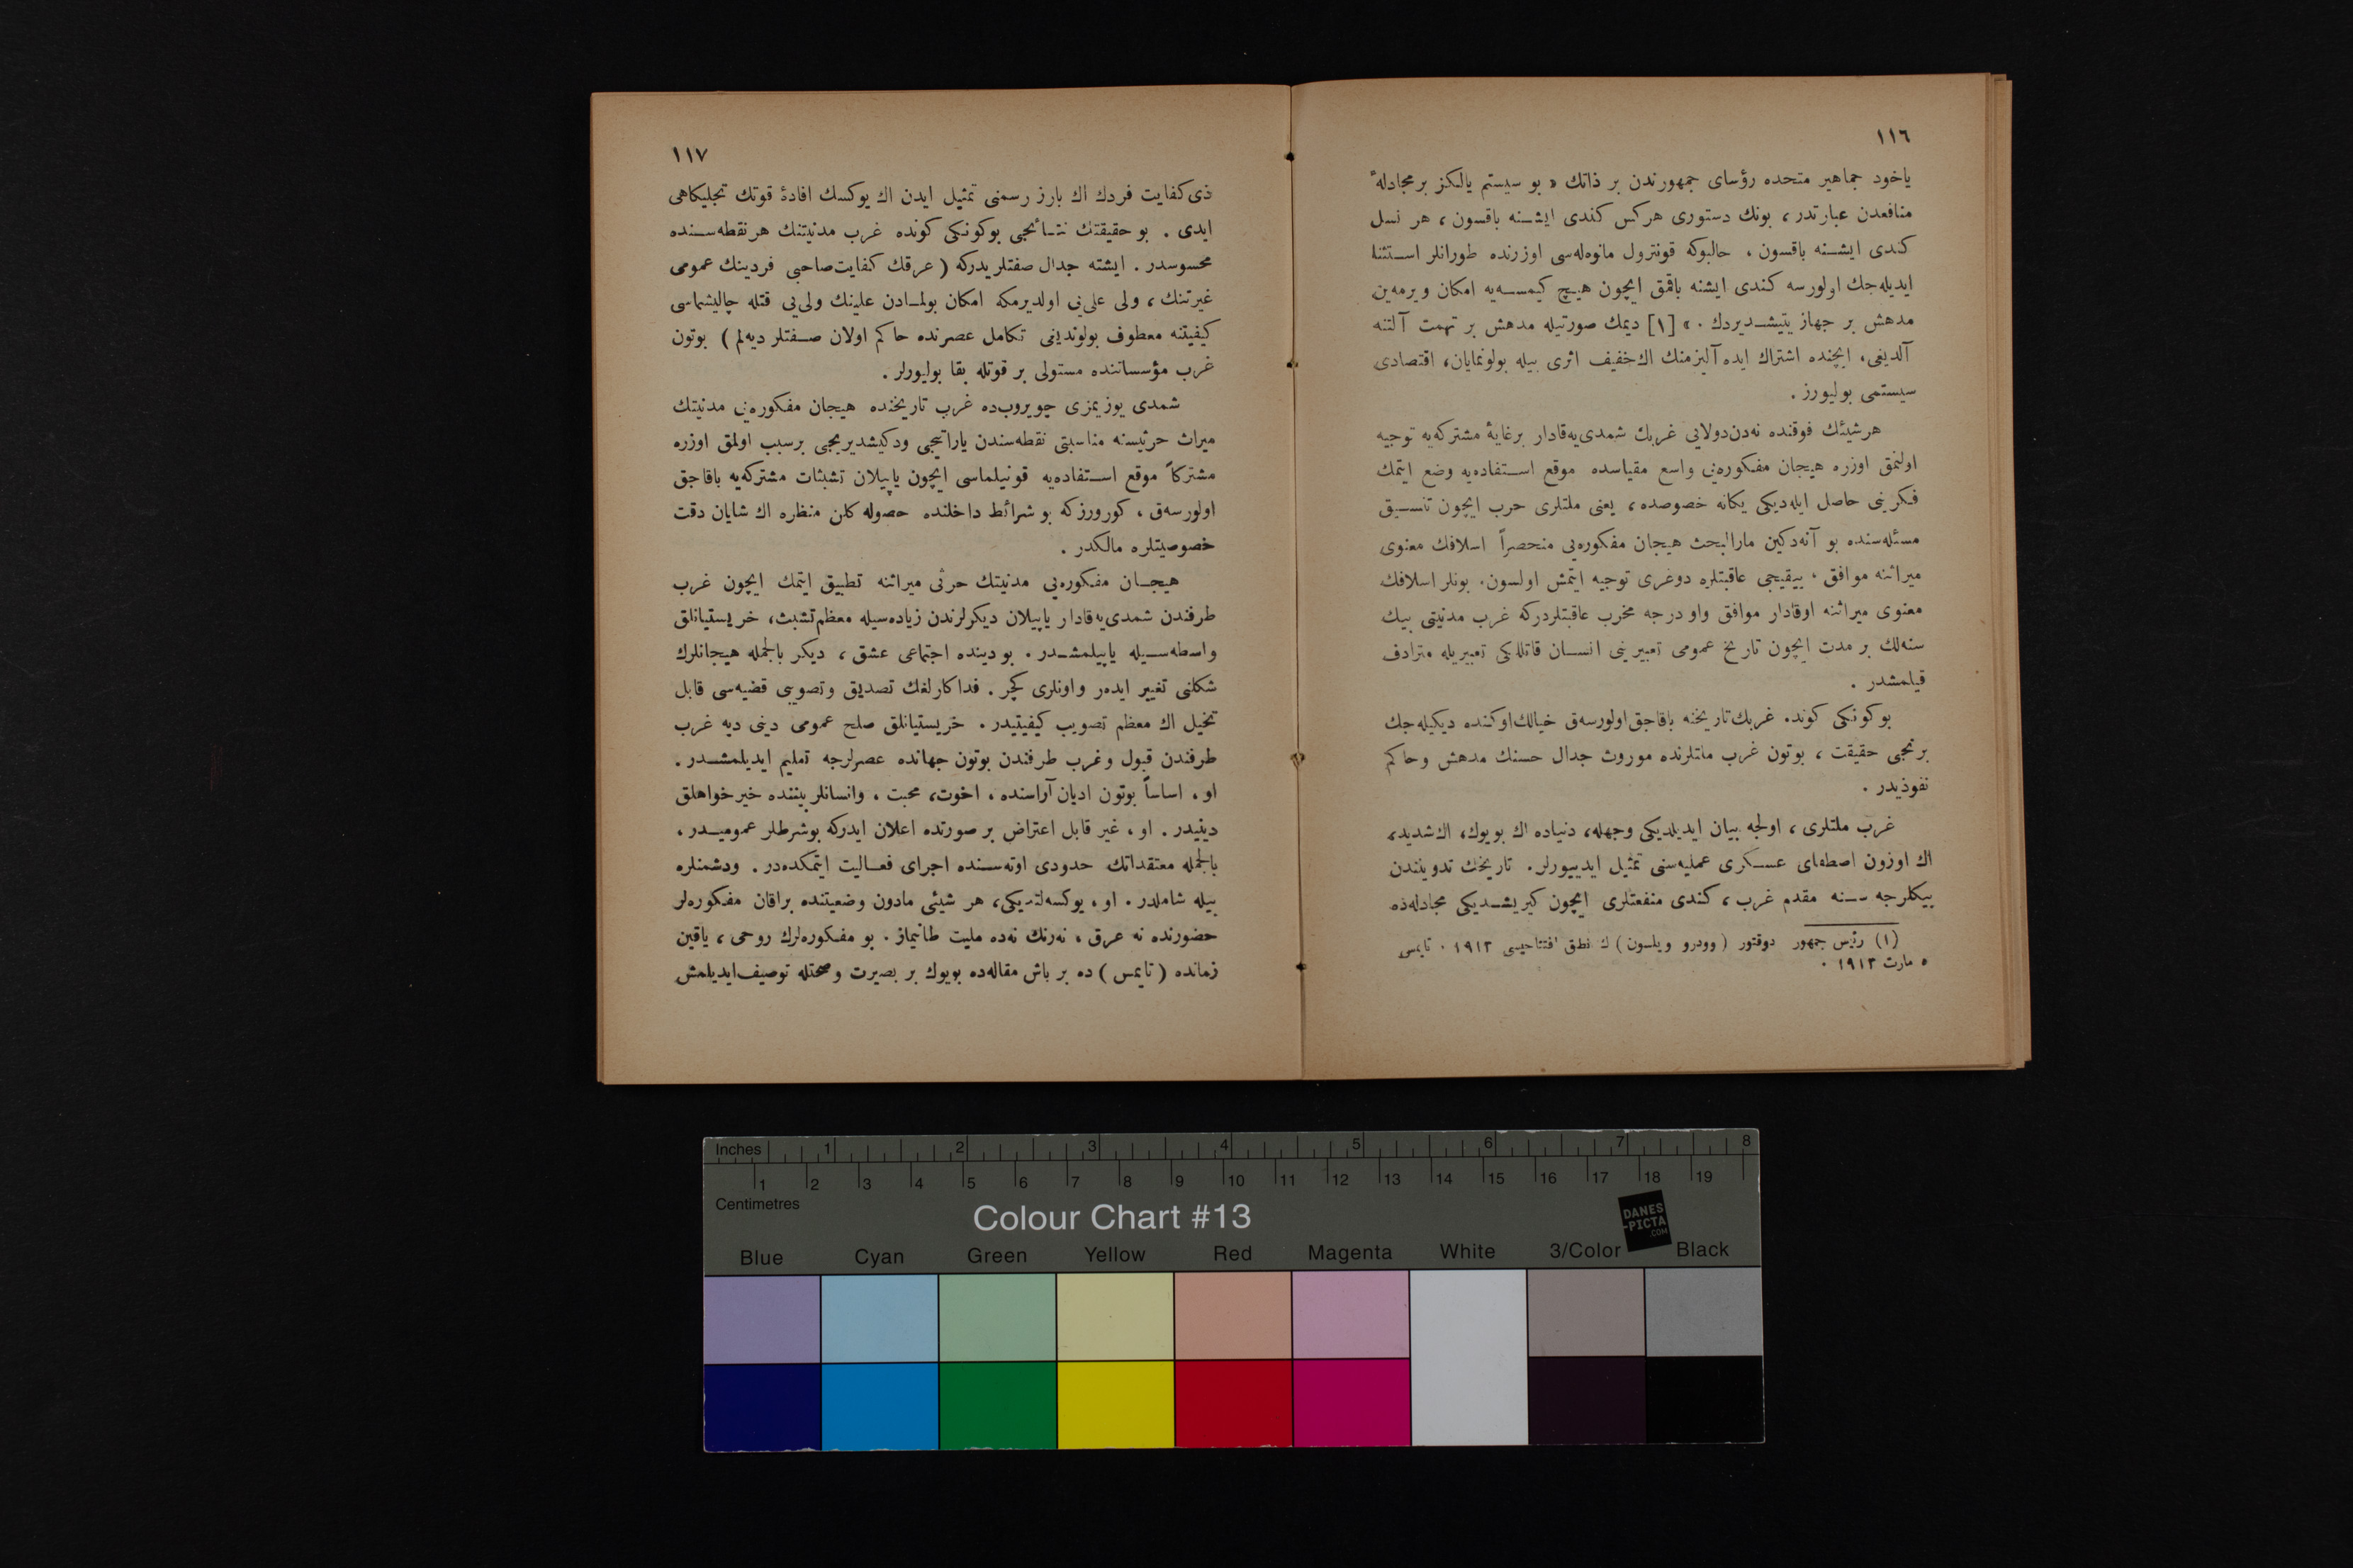 ١١٦
ياخود جماهير متحده رؤساى جمهورندن بر ذاتك « بو سيستم يالكز بر مجادلهٔ
منافعدن عبارتدر ، بونك دستورى هركس كندى ايشنه باقسون ، هر نسل
كندى ايشنه باقسون ، حالبوكه قونترول مانوه‌له‌سى اوزرنده طورانلر استثنا
ايديله‌جك اولورسه كندى ايشنه باقمق ايچون هيچ كيمسه‌يه امكان ويرمه‌ين
مدهش بر جهاز يتيشديردك . » [١] ديمك صورتيله مدهش بر تهمت آلتنه
آلديغى ، ايچنده اشتراك ايده آليزمنك اك خفيف اثرى بيله بولونمايان ، اقتصادى
سيستمى بوليورز .
هر شيئك فوقنده نه‌دن دولايى غربك شمدى‌يه قادار بر غايهٔ مشتركه‌يه توجيه
اولنمق اوزره هيجان مفكوره‌يى واسع مقياسده موقع استفاده‌يه وضع ايتمك
فكرينى حاصل ايله‌ديكى يكانه خصوصده ، يعنى ملتلرى حرب ايچون تنسيق
مسئله‌سنده بو آنه‌دكين مارالبحث هيجان مفكوره‌يى منحصراً اسلافك معنوى
ميراثنه موافق ، ييقيجى عاقبتلره دوغرى توجيه ايتمش اولسون . بونلر اسلافك
معنوى ميراثنه اوقادار موافق واو درجه مخرب عاقبتلردركه غرب مدنيتى بيك
سنه‌لك بر مدت ايچون تاريخ عمومى تعبيرينى انسان قاتللكى تعبيريله مترادف
قيلمشدر .
بو كونكى كوند. غربك تاريخنه باقاجق اولورسه‌ق خيالك اوكنده ديكيله‌جك
برنجى حقيقت ، بوتون غرب ملتلرنده موروث جدال حسنك مدهش وحاكم
نفوذيدر .
غرب ملتلرى ، اولجه بيان ايديلديكى وجهله ، دنياده اك بويوك ، اك شديد ،
اك اوزون اصطفاى عسكرى عمليه‌سنى تمثيل ايدييورلر . تاريخك تدويندن
بيكلرجه سنه مقدم غرب ، كندى منفعتلرى ايچون كيريشديكى مجادله‌ده
(١) رئيس جمهور دوقتور (وودرو ويلسون) ك نطق افتتاحيسى ١٩١٣ . تايمس
٥ مارت ١٩١٣ .
١١٧
ذى كفايت فردك اك بارز رسمنى تمثيل ايدن اك يوكسك افادهٔ قوتك تجليكاهى
ايدى . بو حقيقتك نتائجى بوكونكى كونده غرب مدنيتنك هر نقطه‌سنده
محسوسدر . ايشته جدال صفتلريدركه ( عرقك كفايت صاحبى فردينك عمومى
غيرتنك ، ولى على‌يى اولديرمكه امكان بولمادن علينك ولى‌يى قتله چاليشماسى
كيفيتنه معطوف بولونديغى تكامل عصرنده حاكم اولان صفتلر ديه‌لم ) بوتون
غرب مؤسساتنده مستولى بر قوتله بقا بوليورلر .
شمدى يوزيمزى چويروب‌ده غرب تاريخنده هيجان مفكوره‌يى مدنيتك
ميراث حرثيسنه مناسبتى نقطه‌سندن ياراتيجى ودكيشديريجى بر سبب اولمق اوزره
مشتركاً موقع استفاده‌يه قونيلماسى ايچون ياپيلان تشبثات مشتركه‌يه باقاجق
اولورسه‌ق ، كورورزكه بو شرائط داخلنده حصوله كلن منظره اك شايان دقت
خصوصيتلره مالكدر .
هيجان مفكوره‌يى مدنيتك حرثى ميراثنه تطبيق ايتمك ايچون غرب
طرفندن شمدى‌يه قادار ياپيلان ديكرلرندن زياده‌سيله معظم تشبث ، خريستيانلق
واسطه‌سيله ياپيلمشدر . بو دينده اجتماعى عشق ، ديكر بالجمله هيجانلرك
شكلنى تغيير ايده‌ر واونلرى كچر . فداكارلغك تصديق وتصويبى قضيه‌سى قابل
تخيل اك معظم تصويب كيفيتيدر . خريستيانلق صلح عمومى دينى ديه غرب
طرفندن قبول وغرب طرفندن بوتون جهانده عصرلرجه تعليم ايديلمشدر .
او ، اساساً بوتون اديان آراسنده ، اخوت ، محبت ، وانسانلر بيننده خيرخواهلق
دينيدر . او ، غير قابل اعتراض بر صورتده اعلان ايدركه بو شرطلر عموميدر ،
بالجمله معتقداتك حدودى اوته‌سنده اجراى فعاليت ايتمكده‌در . ودشمنلره
بيله شاملدر . او ، يوكسه‌لتديكى ، هر شيئى مادون وضعيتنده براقان مفكوره‌لر
حضورنده نه عرق ، نه‌رنك نه‌ده مليت طانيماز . بو مفكوره‌لرك روحى ، ياقين
زمانده ( تايمس ) ده بر باش مقاله‌ده بويوك بر بصيرت وصحتله توصيف ايديلمش
Inches 1 2 3 4 5 6 7 8
1 2 3 4 5 6 7 8 9 10 11 12 13 14 15 16 17 18 19
Centimetres
Colour Chart #13
DANES
-PICTA
.COM
Blue Cyan Green Yellow Red Magenta White 3/Color Black